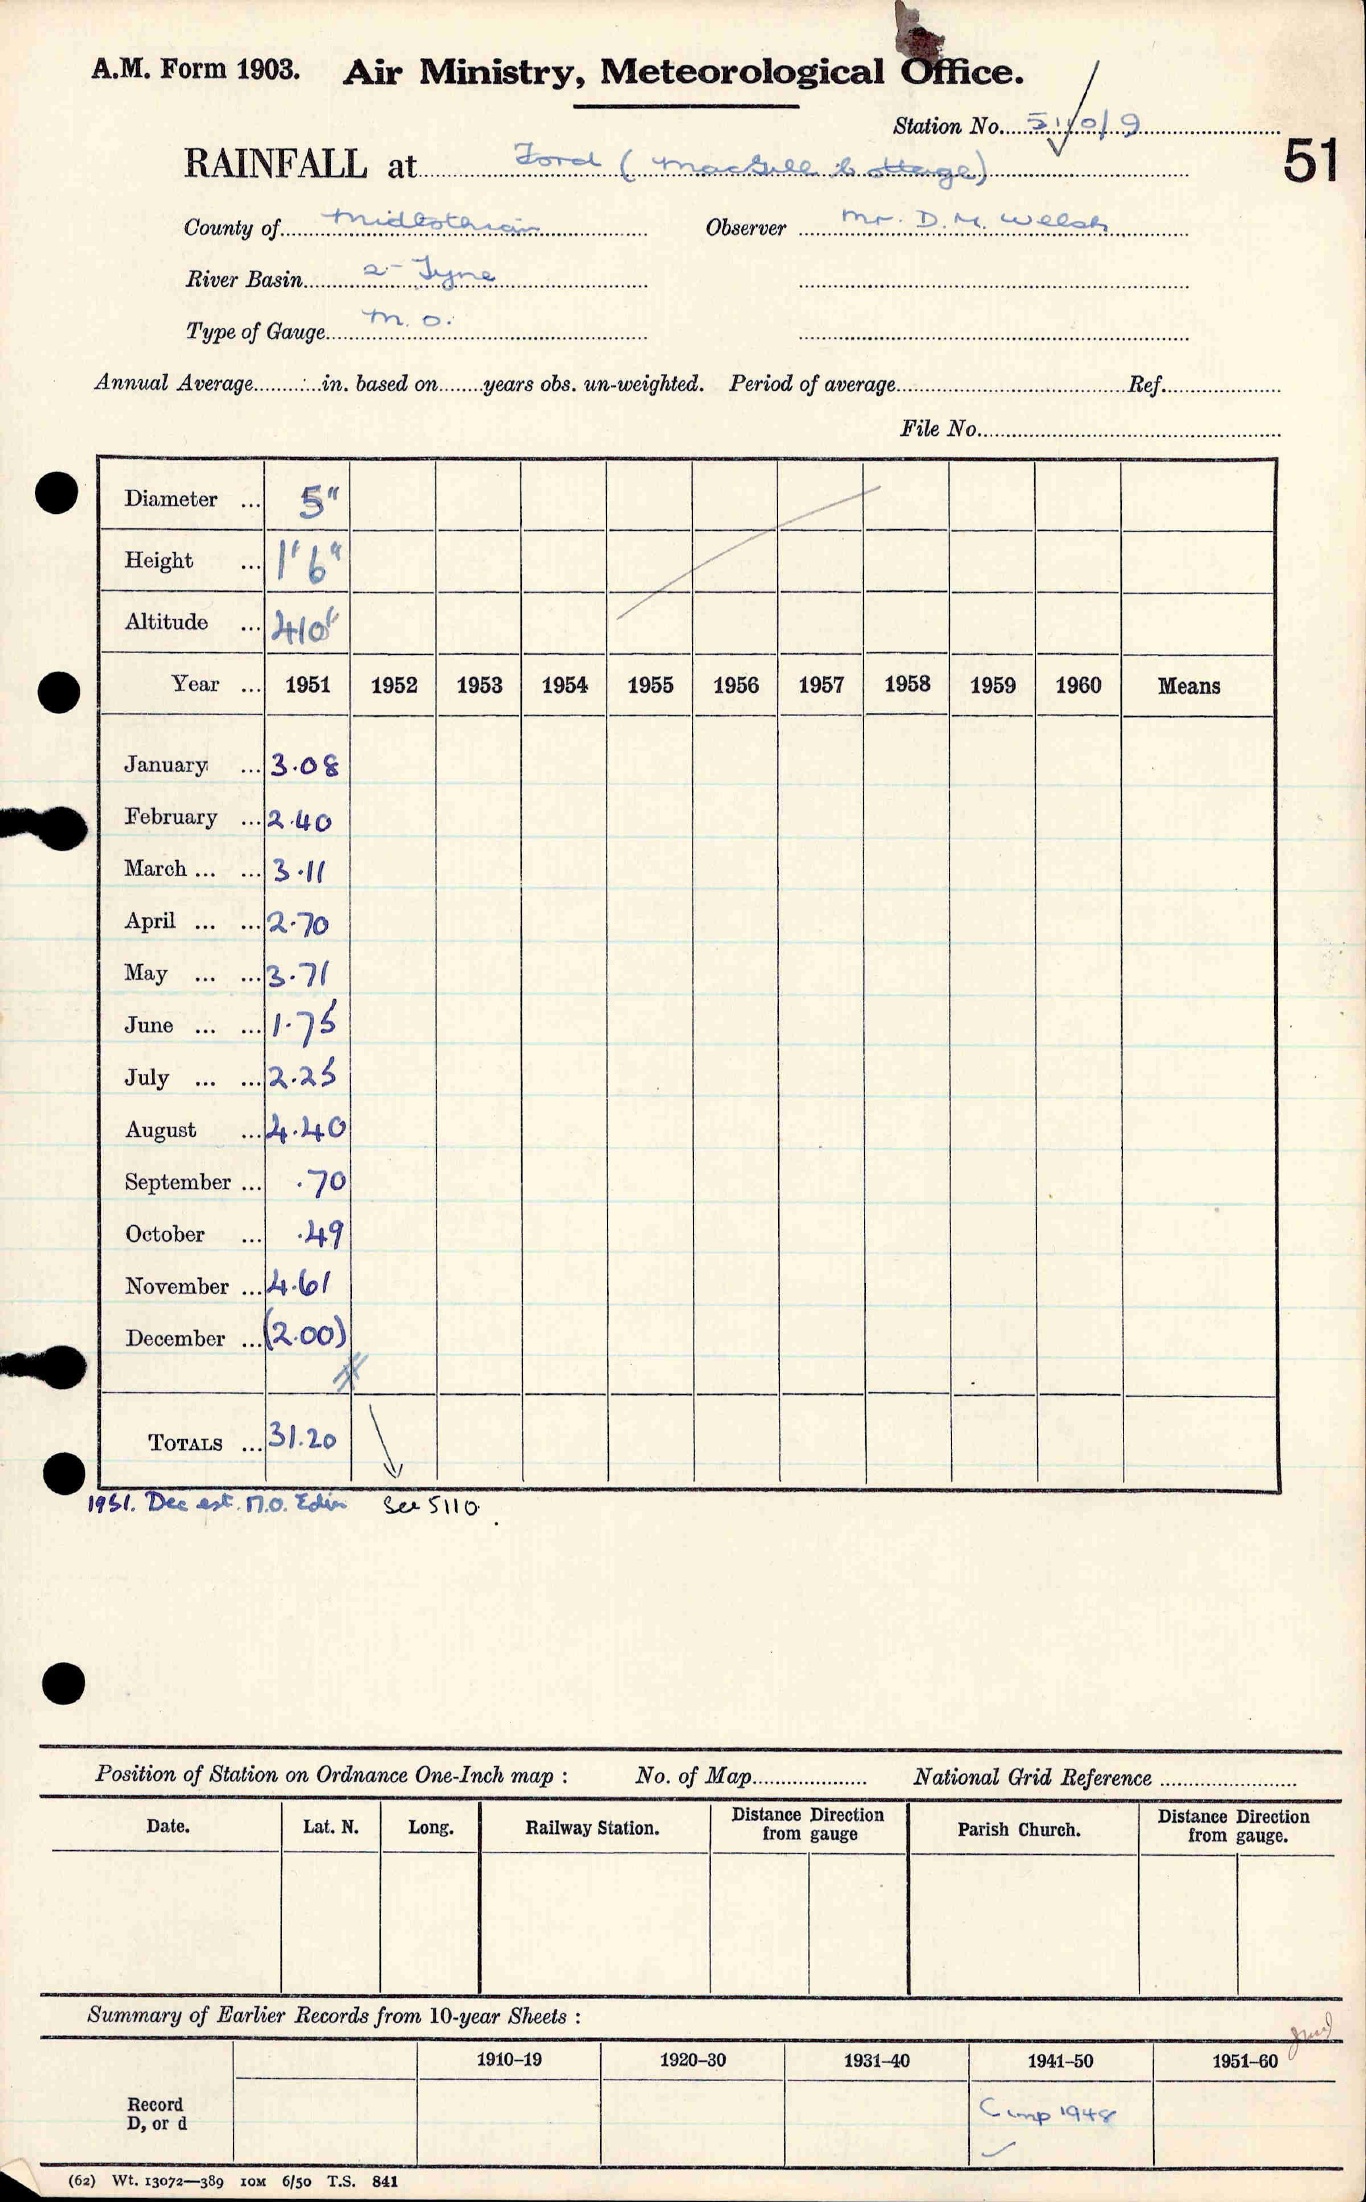 A.M. Form 1903. Air Ministry, Meteorological Office.
Station No. 5110/9
RAINFALL at Ford (MacGill Cottage)
51
County of Midlothian Observer Mr. D. M. Welsh
River Basin 2- Tyne
Type of Gauge M. O.
Annual Average in. based on years obs. un-weighted. Period of average Ref.
File No.
Diameter ... 5"
Height ... 1' 6"
Altitude ... 410'
Year ... 1951 1952 1953 1954 1955 1956 1957 1958 1959 1960 Means
January ... 3.08
February ... 2.40
March ... ... 3.11
April ... ... 2.70
May ... ... 3.71
June ... ... 1.75
July ... ... 2.25
August ... 4.40
September ... .70
October ... .49
November ... 4.61
December ... (2.00)
TOTALS ... 31.20
1951. Dec est. M.O. Edin See 5110.
Position of Station on Ordnance One-Inch map : No. of Map National Grid Reference
Date. Lat. N. Long. Railway Station. Distance Direction from gauge Parish Church. Distance Direction from gauge.
Summary of Earlier Records from 10-year Sheets :
1910–19 1920–30 1931–40 1941–50 1951–60
Record
D, or d
Comp 1948
(62) Wt. 13072—389 10M 6/50 T.S. 841